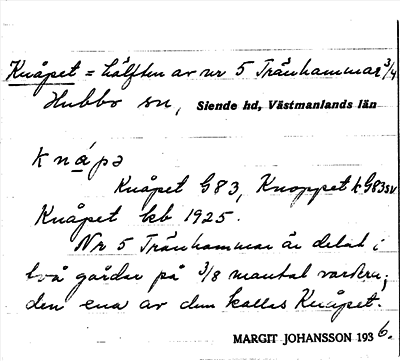 Knåpet = hälften av nr 5 Tränhammar 3/4
Hubbo sn, Siende hd, Västmanlands län
knåpə
Knåpet G83, Knoppet k G83sv
Knåpet kb 1925.
Nr 5 Tränhammar är delat i
två gårdar på 3/8 mantal vardera;
den ena av dem kallas Knåpet.
MARGIT JOHANSSON 1936.